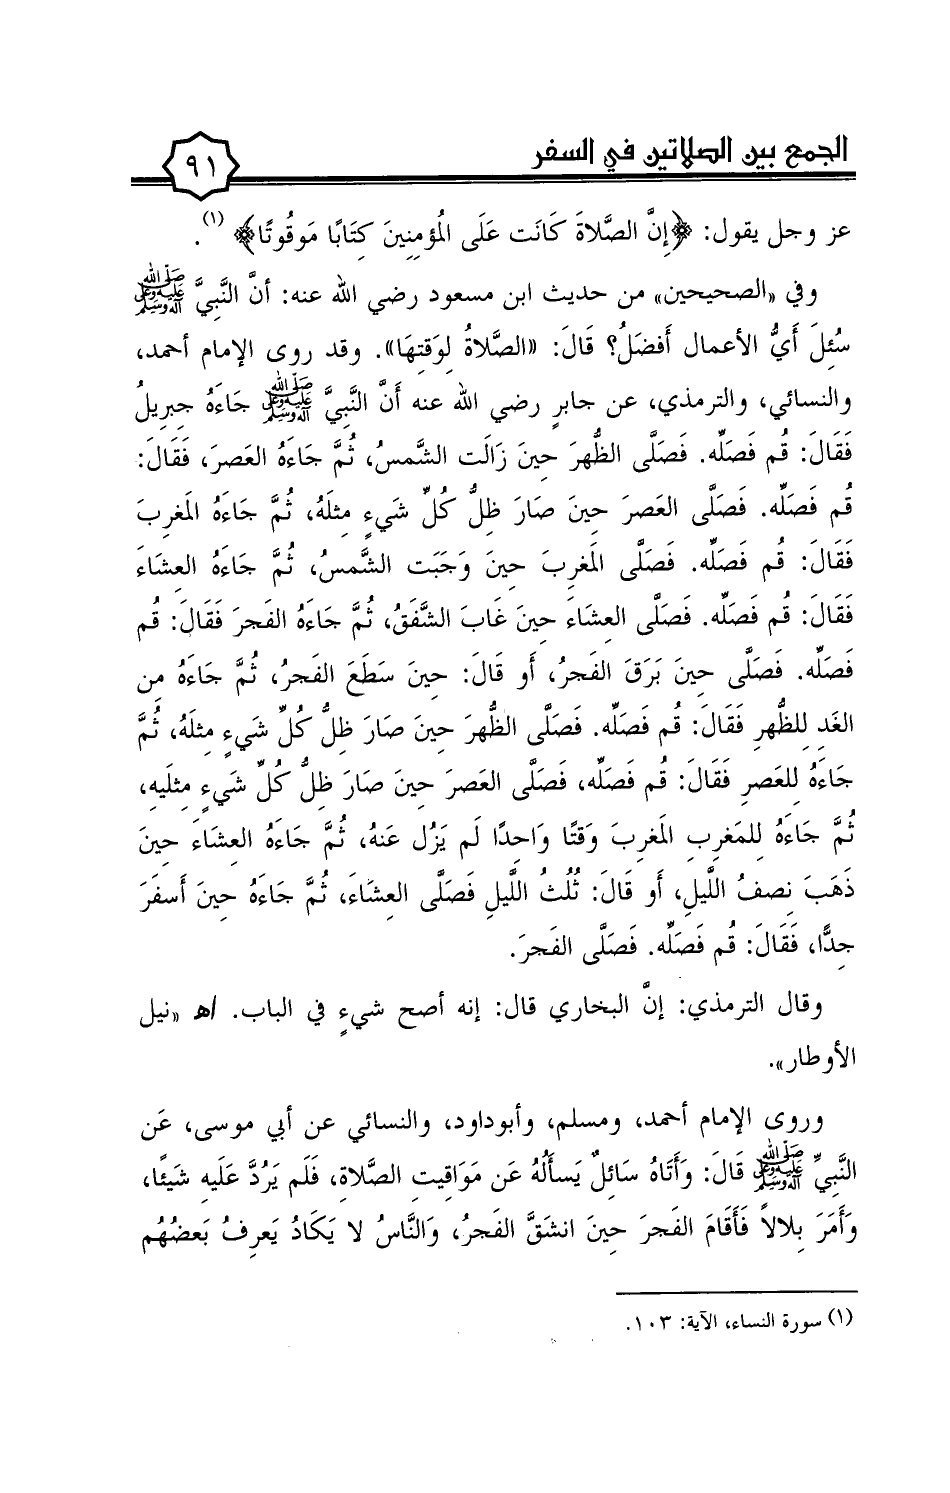 الجمع بين الصلاتين في السفر
٩١
عز وجل يقول: ﴿إِنَّ الصَّلاةَ كَانَت عَلَى المُؤمِنِينَ كِتَابًا مَوقُوتًا﴾ (١).
وفي «الصحيحين» من حديث ابن مسعود رضي الله عنه: أنَّ النَّبِيَّ ﷺ
سُئِلَ أَيُّ الأعمال أَفضَلُ؟ قَالَ: «الصَّلاةُ لِوَقتِهَا». وقد روى الإمام أحمد،
والنسائي، والترمذي، عن جابرٍ رضي الله عنه أَنَّ النَّبِيَّ ﷺ جَاءَهُ جِبرِيلُ
فَقَالَ: قُم فَصَلِّه. فَصَلَّى الظُّهرَ حِينَ زَالَت الشَّمسُ، ثُمَّ جَاءَهُ العَصرَ، فَقَالَ:
قُم فَصَلِّه. فَصَلَّى العَصرَ حِينَ صَارَ ظِلُّ كُلِّ شَيءٍ مِثلَهُ، ثُمَّ جَاءَهُ المَغرِبَ
فَقَالَ: قُم فَصَلِّه. فَصَلَّى المَغرِبَ حِينَ وَجَبَت الشَّمسُ، ثُمَّ جَاءَهُ العِشَاءَ
فَقَالَ: قُم فَصَلِّه. فَصَلَّى العِشَاءَ حِينَ غَابَ الشَّفَقُ، ثُمَّ جَاءَهُ الفَجرَ فَقَالَ: قُم
فَصَلِّه. فَصَلَّى حِينَ بَرَقَ الفَجرُ، أَو قَالَ: حِينَ سَطَعَ الفَجرُ، ثُمَّ جَاءَهُ مِن
الغَدِ لِلظُّهرِ فَقَالَ: قُم فَصَلِّه. فَصَلَّى الظُّهرَ حِينَ صَارَ ظِلُّ كُلِّ شَيءٍ مِثلَهُ، ثُمَّ
جَاءَهُ لِلعَصرِ فَقَالَ: قُم فَصَلِّه، فَصَلَّى العَصرَ حِينَ صَارَ ظِلُّ كُلِّ شَيءٍ مِثلَيهِ،
ثُمَّ جَاءَهُ لِلمَغرِبِ المَغرِبَ وَقتًا وَاحِدًا لَم يَزُل عَنهُ، ثُمَّ جَاءَهُ العِشَاءَ حِينَ
ذَهَبَ نِصفُ اللَّيلِ، أَو قَالَ: ثُلُثُ اللَّيلِ فَصَلَّى العِشَاءَ، ثُمَّ جَاءَهُ حِينَ أَسفَرَ
جِدًّا، فَقَالَ: قُم فَصَلِّه. فَصَلَّى الفَجرَ.
وقال الترمذي: إنَّ البخاري قال: إنه أصح شيءٍ في الباب. اﻫ «نيل
الأوطار».
وروى الإمام أحمد، ومسلم، وأبوداود، والنسائي عن أبي موسى، عَن
النَّبِيِّ ﷺ قَالَ: وَأَتَاهُ سَائِلٌ يَسأَلُهُ عَن مَوَاقِيتِ الصَّلاةِ، فَلَم يَرُدَّ عَلَيهِ شَيئًا،
وَأَمَرَ بِلالاً فَأَقَامَ الفَجرَ حِينَ انشَقَّ الفَجرُ، وَالنَّاسُ لا يَكَادُ يَعرِفُ بَعضُهُم
(١) سورة النساء، الآية: ١٠٣.